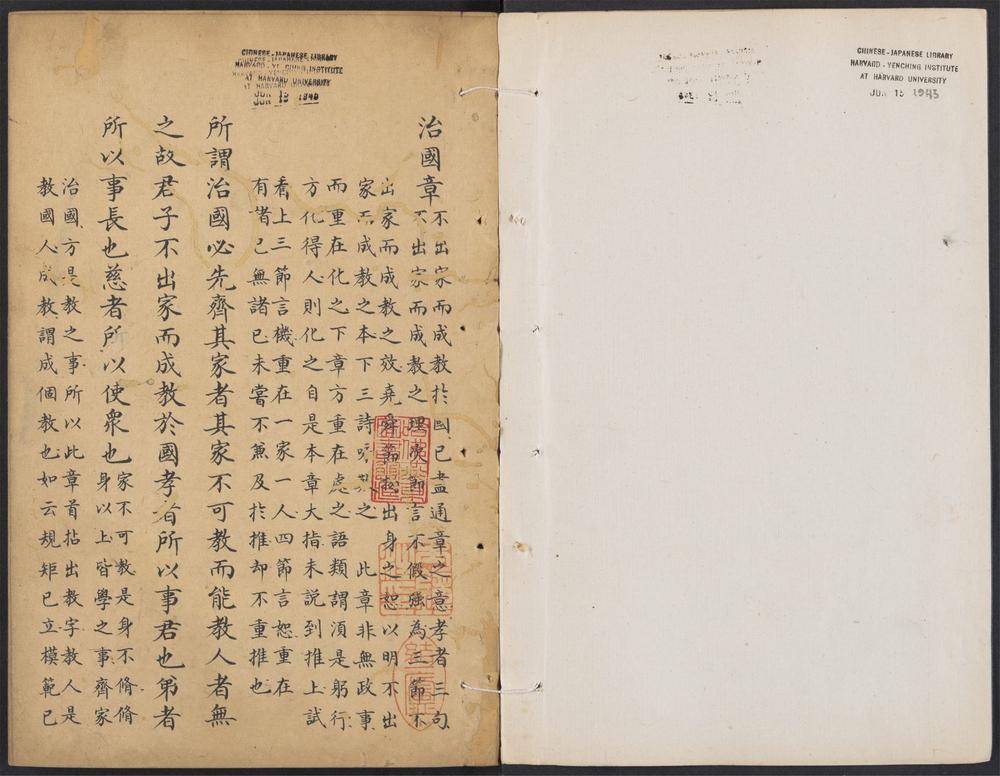 CHINESE-JAPANESE LIBRARY
HARVARD-YENCHING INSTITUTE
AT HARVARD UNIVERSITY
JUN 15 1943
CHINESE-JAPANESE LIBRARY
HARVARD-YENCHING INSTITUTE
AT HARVARD UNIVERSITY
JUN 15
治國章
不出家而成教於國已盡通章之意孝者三句
不出家而成教之理次節言不假強為三節不
出家而成教之效堯舜節出身之恕以明不出
家而成教之本下三詩之 此章非無政事
而重在化之下章方重在處之語類謂須是躬行
方化得人則化之自是本章大指未説到推上試
看上三節言機重在一家一人四節言恕重在
有諸己無諸己未嘗不兼及於推却不重推也
所謂治國必先齊其家者其家不可教而能教人者無
之故君子不出家而成教於國孝者所以事君也弟者
所以事長也慈者所以使衆也
家不可教是身不脩脩
身以上皆學之事齊家
治國方是教之事所以此章首拈出教字教人是
教國人成教謂成個教也如云規矩已立模範已